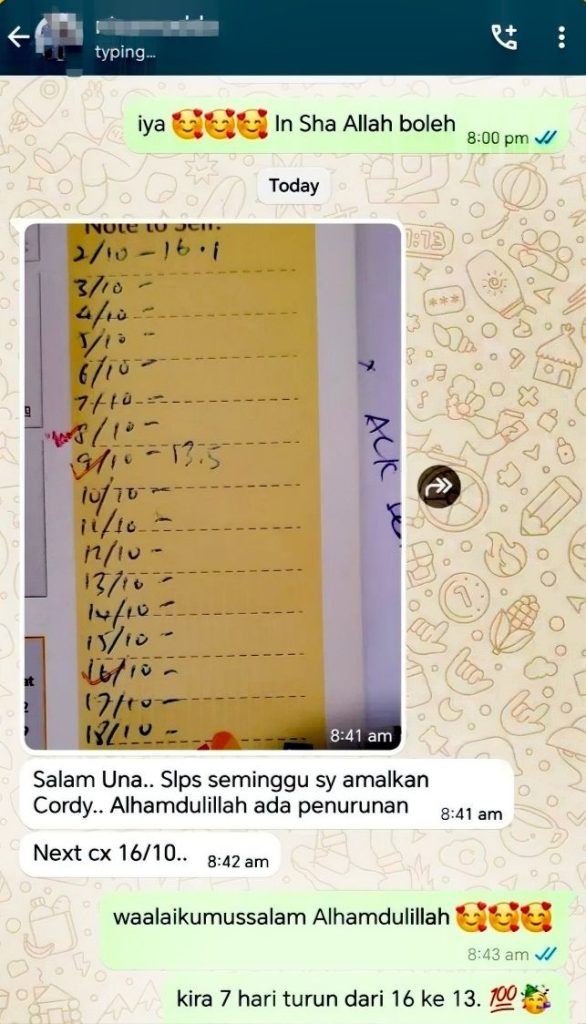 typing...
iya 🥰🥰🥰 In Sha Allah boleh
8:00 pm
Today
Note to Self:
2/10 - 16.1
3/10 -
4/10 -
5/10 -
6/10 -
7/10 -
8/10 -
9/10 - 13.5
10/10 -
11/10 -
12/10 -
13/10 -
14/10 -
15/10 -
16/10 -
17/10 -
18/10 -
ACK
8:41 am
Salam Una.. Slps seminggu sy amalkan
Cordy.. Alhamdulillah ada penurunan
8:41 am
Next cx 16/10..
8:42 am
waalaikumussalam Alhamdulillah 🥰🥰🥰
8:43 am
kira 7 hari turun dari 16 ke 13. 💯🥳